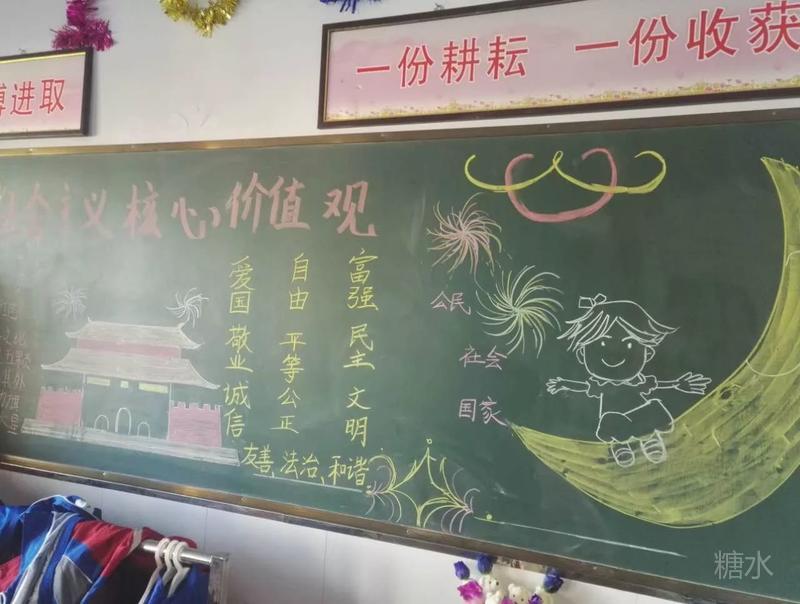 博进取
一份耕耘 一份收获
社会主义核心价值观
富强 民主 文明
自由 平等 公正
爱国 敬业 诚信
友善 法治 和谐
公民
社会
国家
糖水